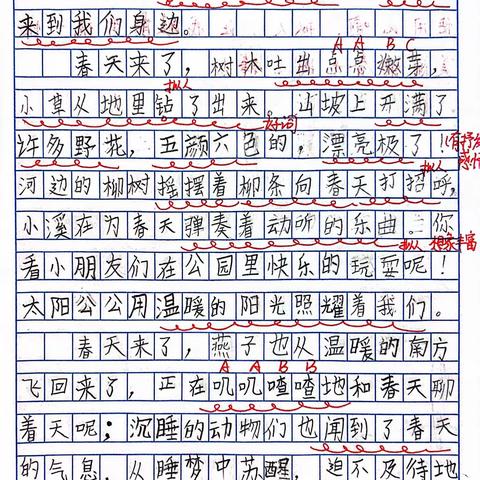 来到我们身边。
A A B C
春天来了，树木吐出点点嫩芽，
拟人
小草从地里钻了出来。山坡上开满了
好词
许多野花，五颜六色的，漂亮极了！
拟人
河边的柳树摇摆着柳条向春天打招呼，
小溪在为春天弹奏着动听的乐曲。你
拟人 想象丰富
看小朋友们在公园里快乐的玩耍呢！
太阳公公用温暖的阳光照耀着我们。
春天来了，燕子也从温暖的南方
A A B B
飞回来了，正在叽叽喳喳地和春天聊
着天呢；沉睡的动物们也闻到了春天
的气息，从睡梦中苏醒，迫不及待地